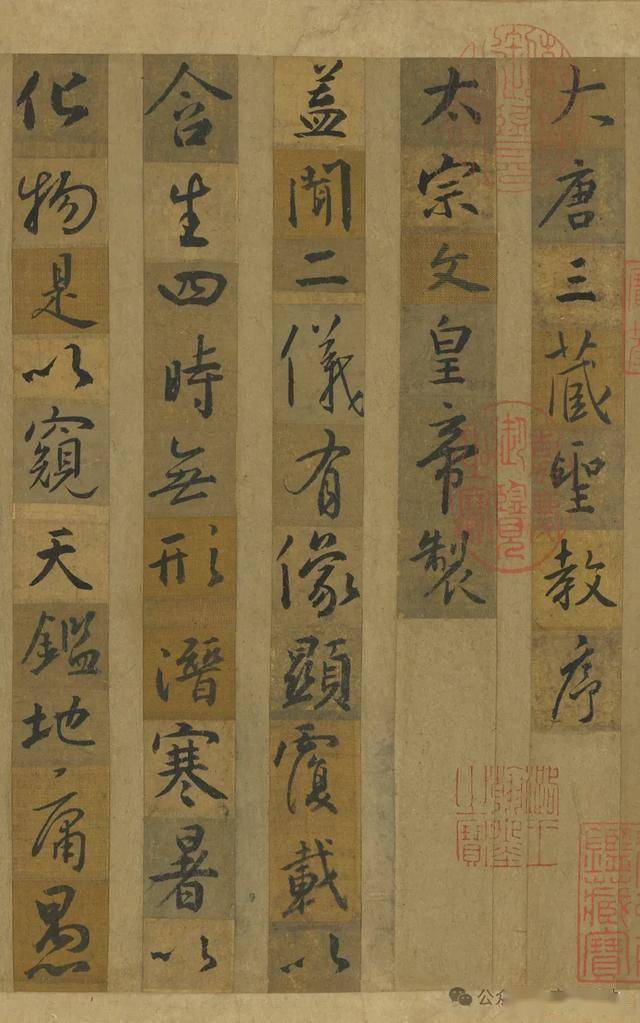 大唐三藏聖教序
太宗文皇帝製
盖聞二儀有像顯覆載以
含生四時無形潛寒暑以
化物是以窺天鑑地庸愚